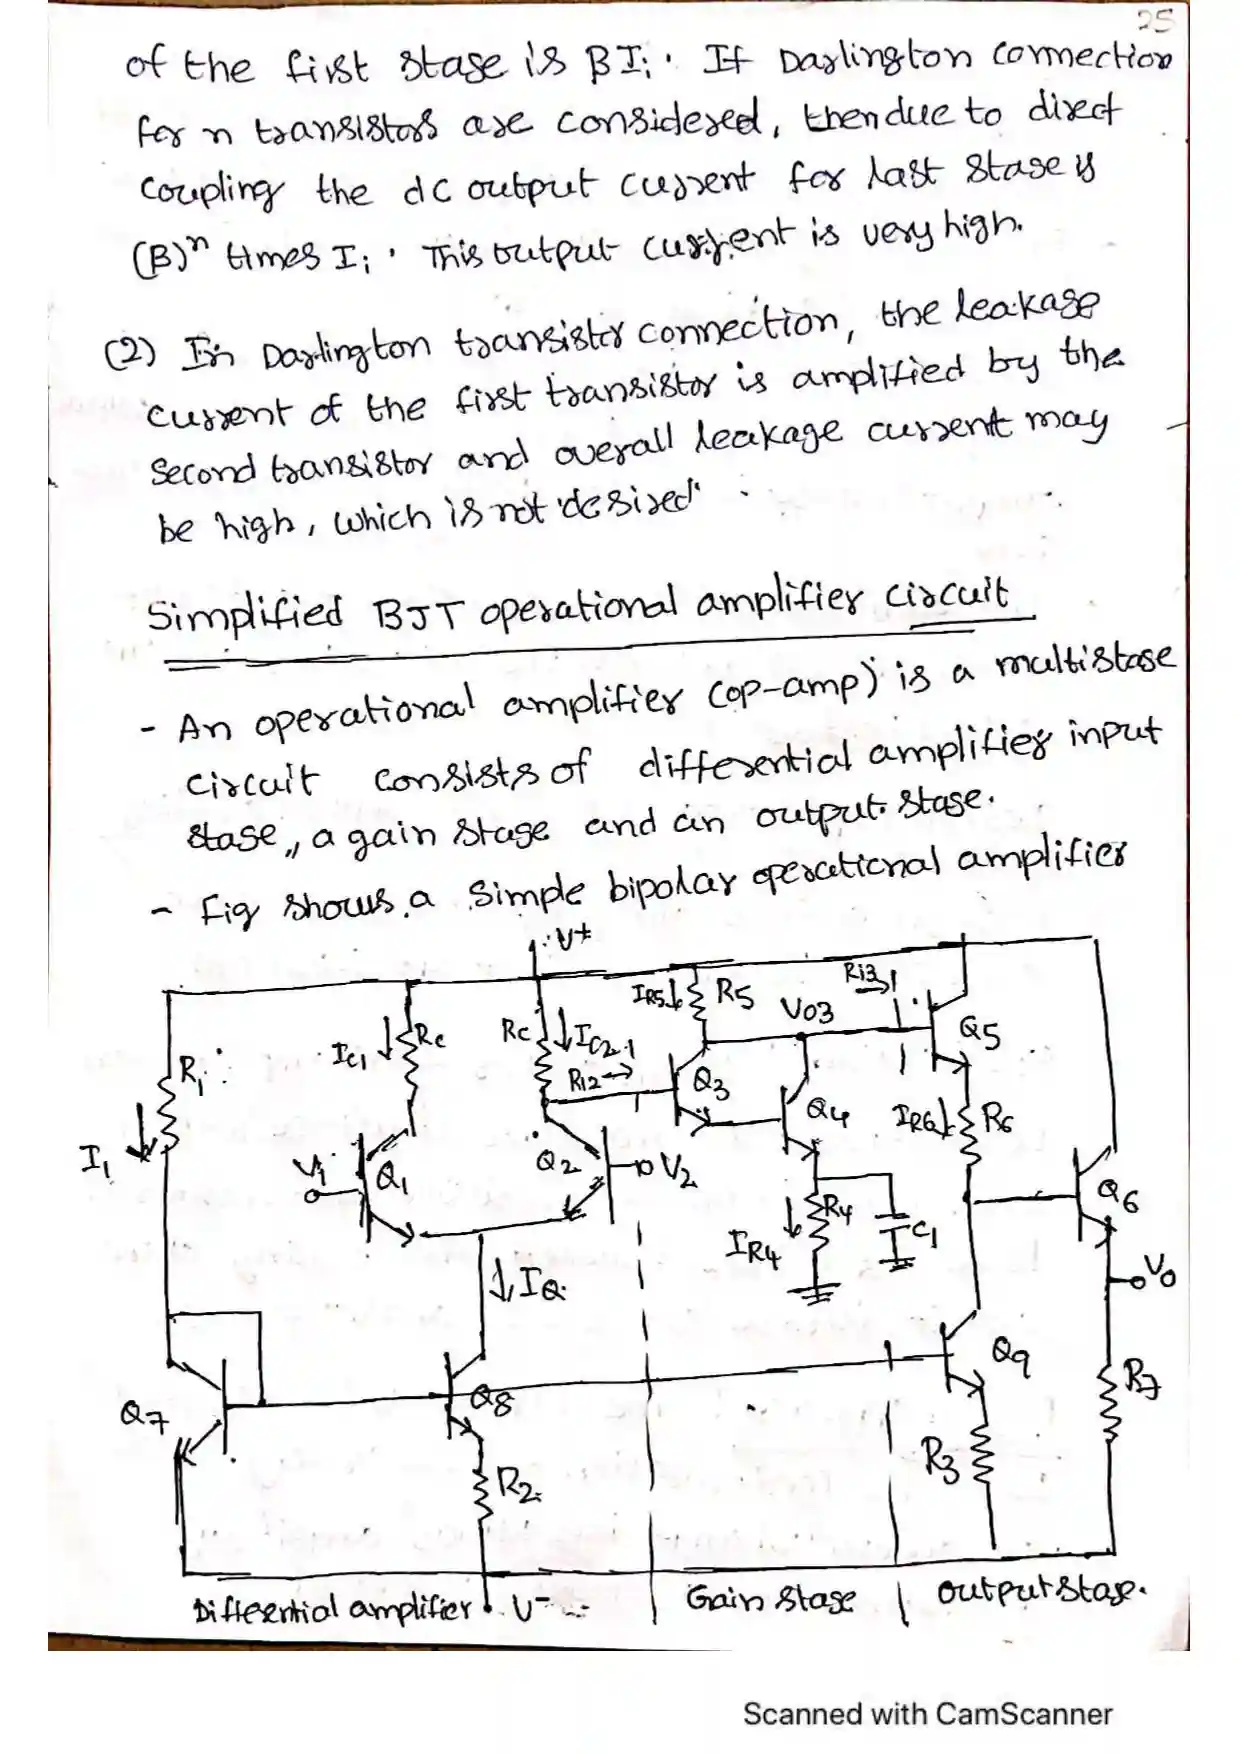 25
of the first stage is βIi. If Darlington connection
for n transistors are considered, then due to direct
coupling the dc output current for last stage is
(β)ⁿ times Ii. This output current is very high.
(2) In Darlington transistor connection, the leakase
current of the first transistor is amplified by the
second transistor and overall leakage current may
be high, which is not desired
Simplified BJT operational amplifier circuit
- An operational amplifier (op-amp) is a multistase
circuit consists of differential amplifier input
stase, a gain stage and an output stase.
- Fig shows a simple bipolar operational amplifier
V+
Ri3
IR5 R5 V03
Q5
Ic1 Rc Rc IC2
R1
Ri2 Q3
Q4 IR6 R6
I1
V1 Q1 Q2 V2
Q6
R4 C1
IR4
IQ
V0
Q9
R7
Q7 Q8
R3
R2
Differntial amplifier V- Gain stase output stase.
Scanned with CamScanner